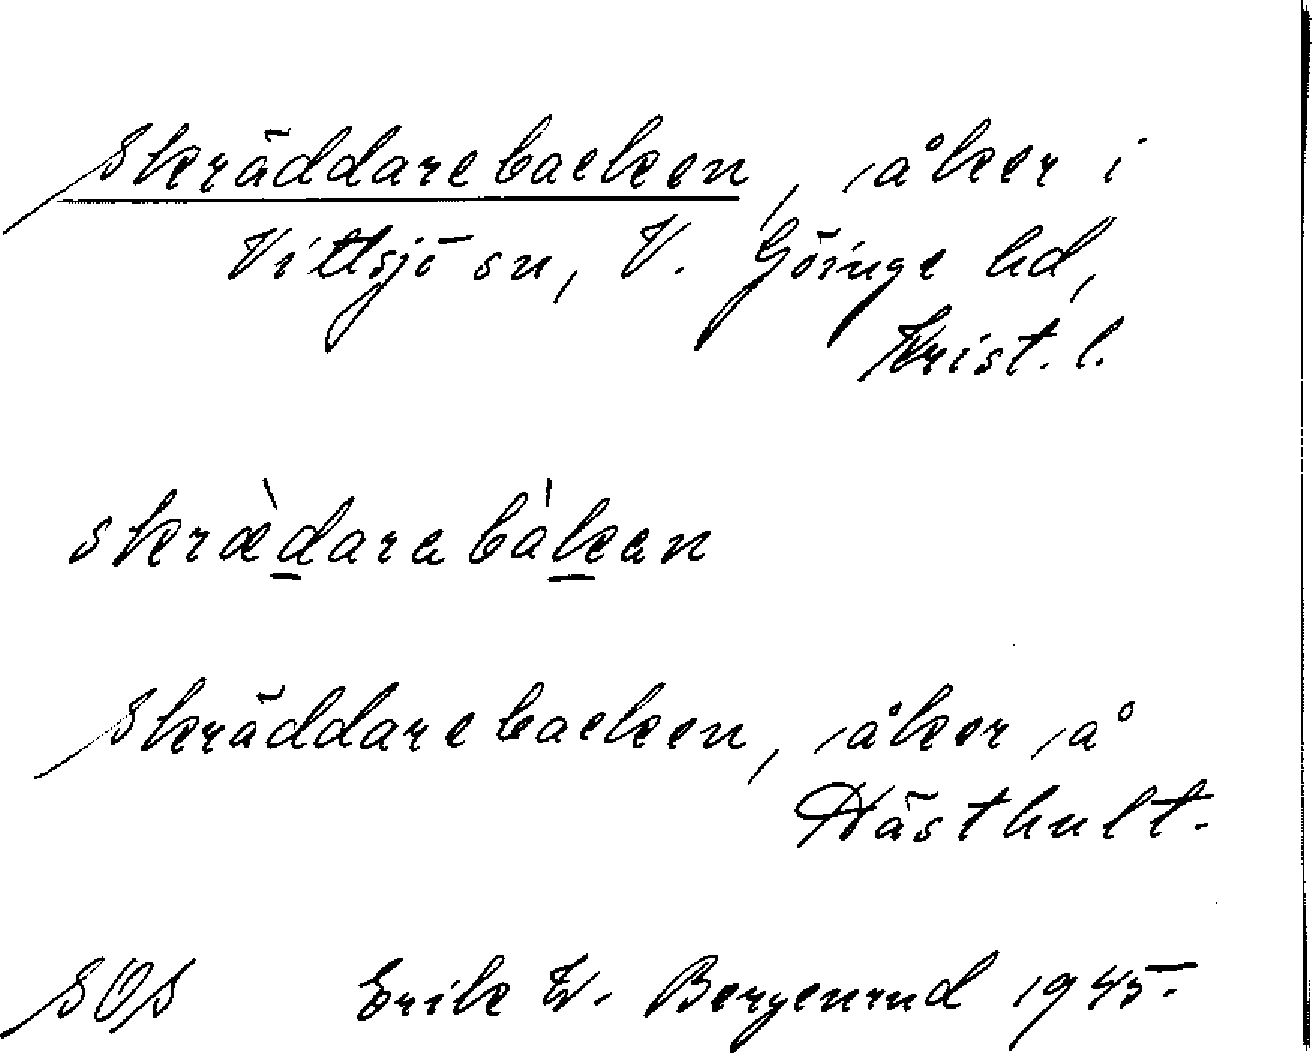 Skräddarebacken, åker i
Vittsjö sn, V. Göinge hd,
Krist. l.
skræ̀darabàkan
Skräddarebacken, åker å
Hästhult.
SOS Erik W. Bergenrud 1945.